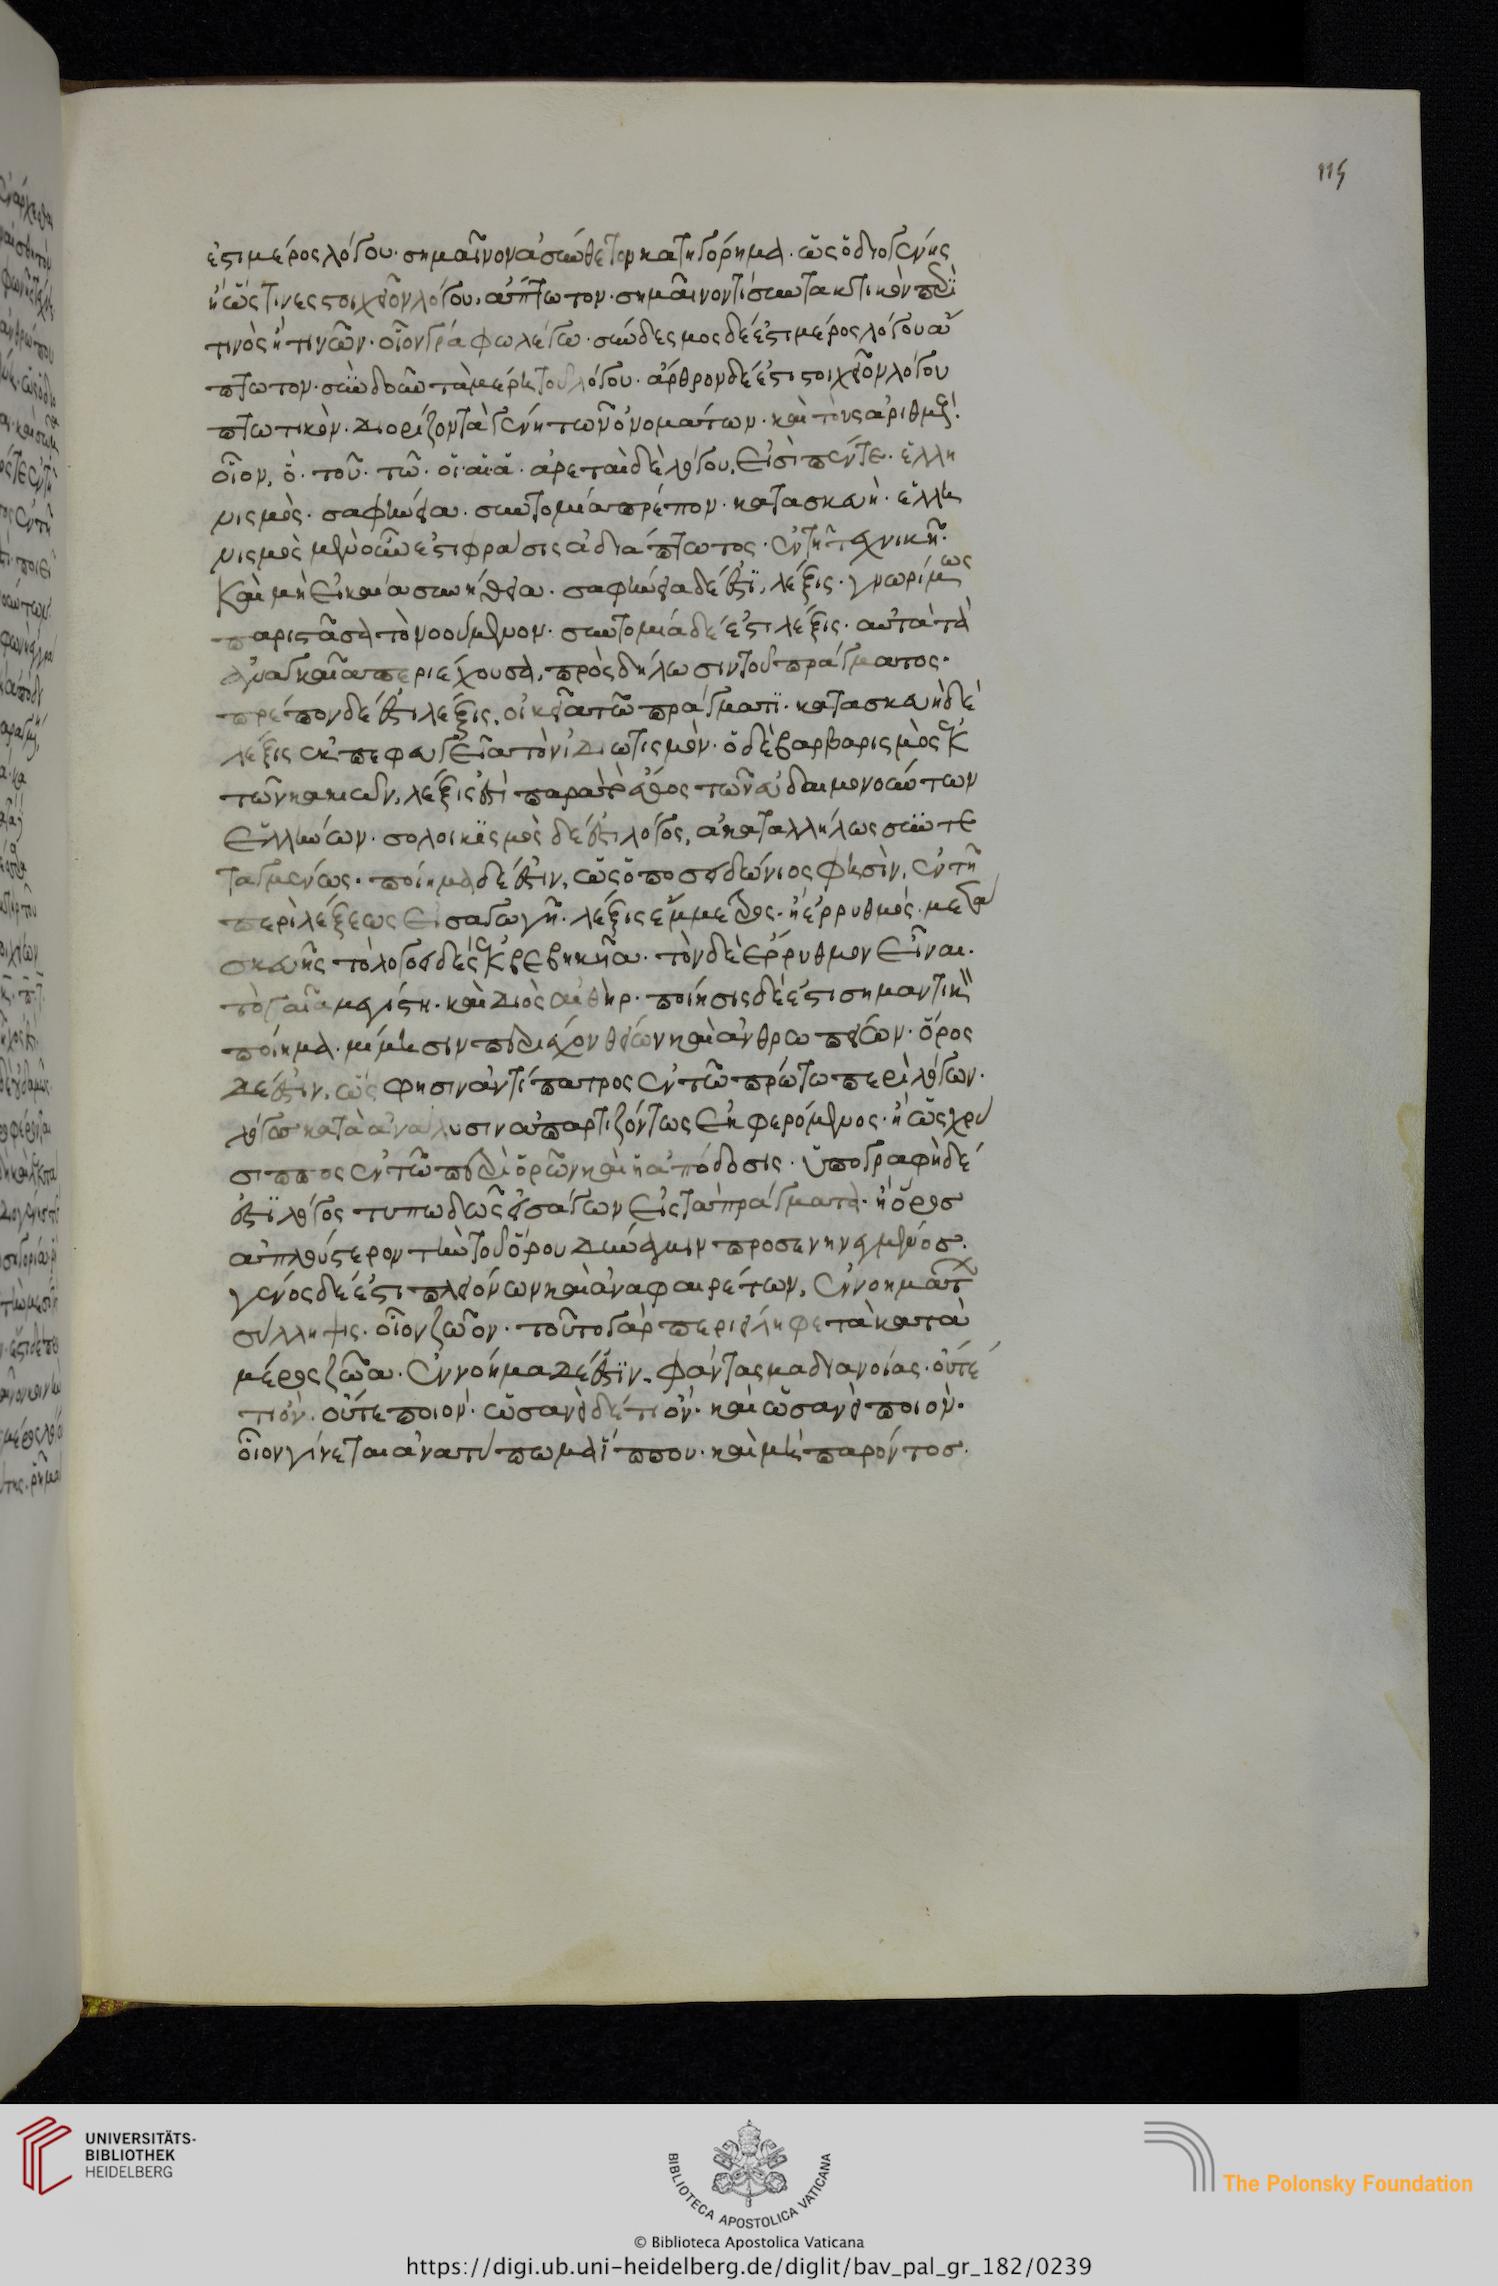 115
ἐστι μέρος λόγου· σημαῖνον ἀσύνθετον κατηγόρημα· ὡς ὁ διογένης
ἢ ὥς τινες στοιχεῖον λόγου, ἄπτωτον· σημαῖνον τι συντακτικὸν περὶ
τινὸς ἢ τινῶν· οἷον γράφω λέγω· σύνδεσμος δέ ἐστι μέρος λόγου ἄ
πτωτον· συνδοῦν τὰ μέρη τοῦ λόγου· ἄρθρον δέ ἐστι στοιχεῖον λόγου
πτωτικὸν· διορίζον τὰ γένη τῶν ὀνομάτων· καὶ τοὺς ἀριθμούς·
οἷον, ὁ· τοῦ· τῶ· οἱ· αἱ· ἁ· ἀρεταὶ δὲ λόγου, εἰσὶ πέντε· ἑλλη
νισμὸς· σαφήνεια· συντομία πρέπον· κατασκευὴ· ἑλλη
νισμὸς μὲν οὖν ἐστι φράσις ἀδιάπτωτος· ἐν τῆ τεχνικῆ·
καὶ μὴ εἰκαία συνηθεία· σαφήνεια δέ ἐστι, λέξις· γνωρίμως
παριστᾶσα τὸ νοούμενον· συντομία δέ ἐστι λέξις· αὐτὰ τὰ
ἀναγκαῖα περιέχουσα, πρὸς δήλωσιν τοῦ πράγματος·
πρέπον δέ ἐστι λέξις, οἰκεία τῶ πράγματι· κατασκευὴ δὲ
λέξις ἐκπεφευγεῖα τὸν ἰδιωτισμόν· ὁ δὲ βαρβαρισμὸς ἐκ
τῶν κακιῶν, λέξις ἐστὶ παρὰ τὸ ἔθος τῶν εὐδαιμονούντων
ἑλλήνων· σολοικισμὸς δέ ἐστι λόγος, ἀκαταλλήλως συντε
ταγμένως· ποίημα δέ ἐστιν, ὡς ὁ ποσειδώνιος φησὶν, ἐν τῆ
περὶ λέξεως εἰσαγωγῆ· λέξις ἔμμετρος· ἢ ἔρρυθμος· μετὰ
σκευῆς τὸ λογοειδές ἐκβεβηκυῖα· τὸν δὲ ἔρρυθμον εἶναι·
τὸ γαῖα μεγίστη· καὶ διὸς αἰθὴρ· ποίησις δέ ἐστι σημαντικὸν
ποίημα· μίμησιν περιέχον θείων καὶ ἀνθρωπείων· ὅρος
δέ ἐστιν, ὥς φησιν ἀντίπατρος ἐν τῶ πρώτω περὶ λόγων·
λόγος κατὰ ἀνάλυσιν ἀπαρτιζόντως ἐκφερόμενος· ἢ ὡς χρύ
σιππος ἐν τῶ περὶ ὅρων καὶ ἡ ἀπόδοσις· ὑπογραφὴ δέ
ἐστι λόγος τυπωδῶς εἰσάγων εἰς τὰ πράγματα· ἢ ὅρος
ἁπλούστερον τὴν τοῦ ὅρου δύναμιν προσενηνεγμένος·
γένος δέ ἐστι πλειόνων καὶ ἀναφαιρέτων, ἐννοημάτων
σύλληψις· οἷον ζῶον· τοῦτο γὰρ περιείληφε τὰ κατὰ
μέρος ζῶα· ἐννόημα δέ ἐστιν, φάντασμα διανοίας· οὔτέ
τι ὄν· οὔτε ποιόν· ὡσανεὶ δέ τι ὄν· καὶ ὡσανεὶ ποιόν·
οἷον γίνεται ἀνατύπωμα ἵππου· καὶ μὴ παρόντος·
UNIVERSITÄTS-
BIBLIOTHEK
HEIDELBERG
BIBLIOTECA APOSTOLICA VATICANA
The Polonsky Foundation
© Biblioteca Apostolica Vaticana
https://digi.ub.uni-heidelberg.de/diglit/bav_pal_gr_182/0239